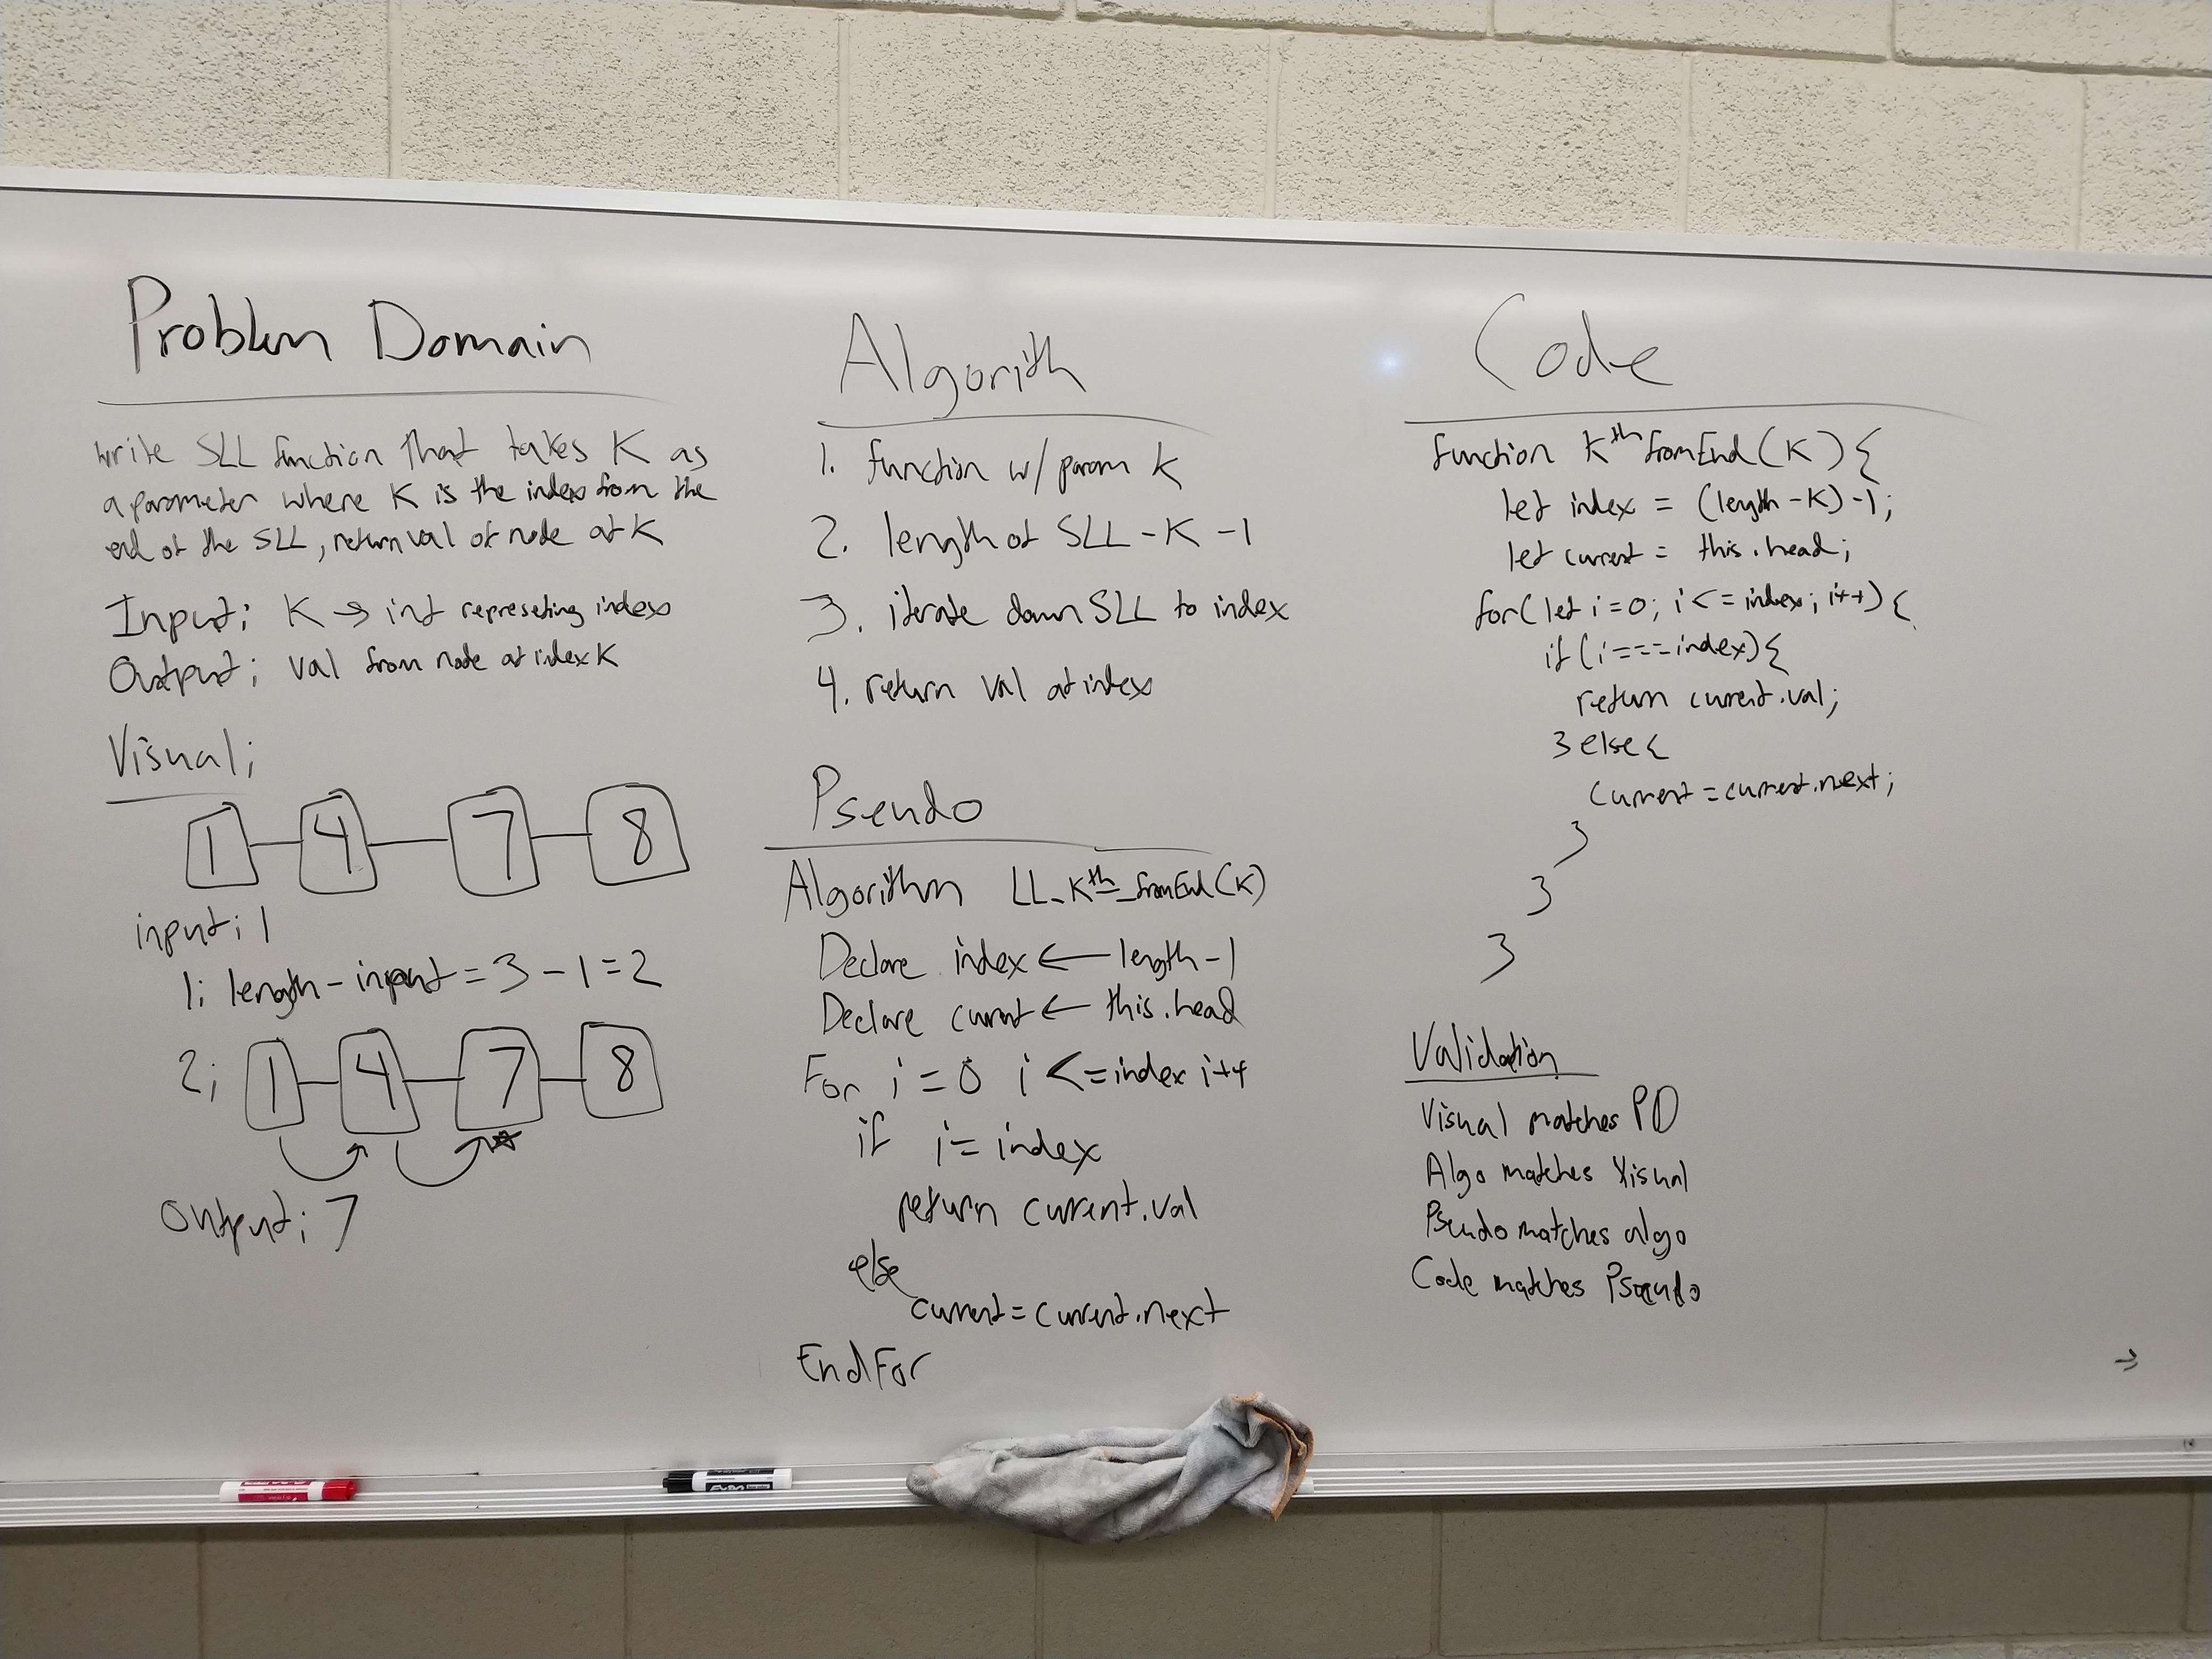 Problem Domain
write SLL function that takes K as
a parameter where K is the index from the
end of the SLL, return val of node at K
Input; K → int represeting index
Output; val from node at index K
Visual;
1 4 7 8
input; 1
1; length - input = 3 - 1 = 2
2; 1 4 7 8
Output; 7
Algorith
1. function w/ param k
2. length of SLL - K - 1
3. iterate down SLL to index
4. return val at index
Pseudo
Algorithm LL_Kth_fromEnd(K)
Declare index ← length - 1
Declare current ← this.head
For i = 0 i <= index i++
if i = index
return current.val
else
current = current.next
EndFor
Code
function Kth fromEnd(K) {
let index = (length - K) - 1;
let current = this.head;
for(let i = 0; i <= index; i++) {
if (i === index) {
return current.val;
} else {
current = current.next;
}
}
}
Validation
Visual matches PD
Algo matches Visual
Pseudo matches algo
Code matches Pseudo
→
EXPO